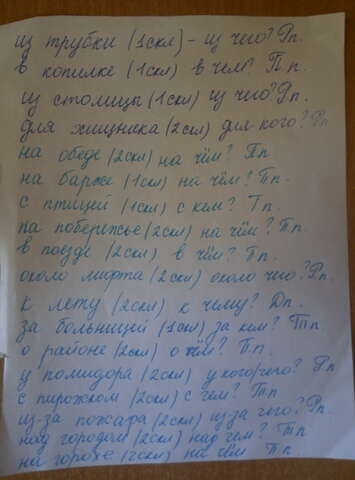 из трубки (1скл) - из чего? Рп.
в копилке (1скл) в чём? П.п.
из столицы (1скл) из чего? Рп.
для хищника (2скл) для кого? Рп
на обеде (2скл) на чём? Пп.
на барже (1скл) на чём? Пп.
с птицей (1скл) с кем? Тп.
на побережье (2скл) на чём? Пп.
в поезде (2скл) в чём? Пп.
около лифта (2скл) около чего? Рп.
к лету (2скл) к чему? Дп.
за больницей (1скл) за кем? Тп.
о районе (2скл) о чём? Пп.
у помидора (2скл) у кого/чего? Рп
с пирожком (2скл) с чем? Тп.
из-за пожара (2скл) из-за чего? Рп.
над городом (2скл) над чем? Тп
на горохе (2скл) на чём Пп.